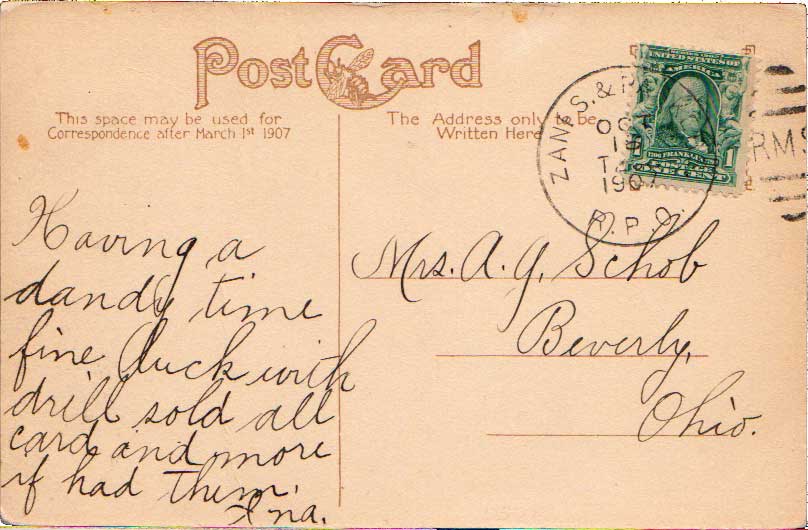 Post Card
This space may be used for
Correspondence after March 1st 1907
The Address only to be
Written Here
ZANES. &
OCT
1907
R. P. O.
RMS
UNITED STATES OF
AMERICA
FRANKLIN
1 POSTAGE 1
ONE CENT
Having a
dandy time
fine luck with
drill sold all
card and more
if had them.
Ina.
Mrs. A. G. Schob
Beverly,
Ohio.